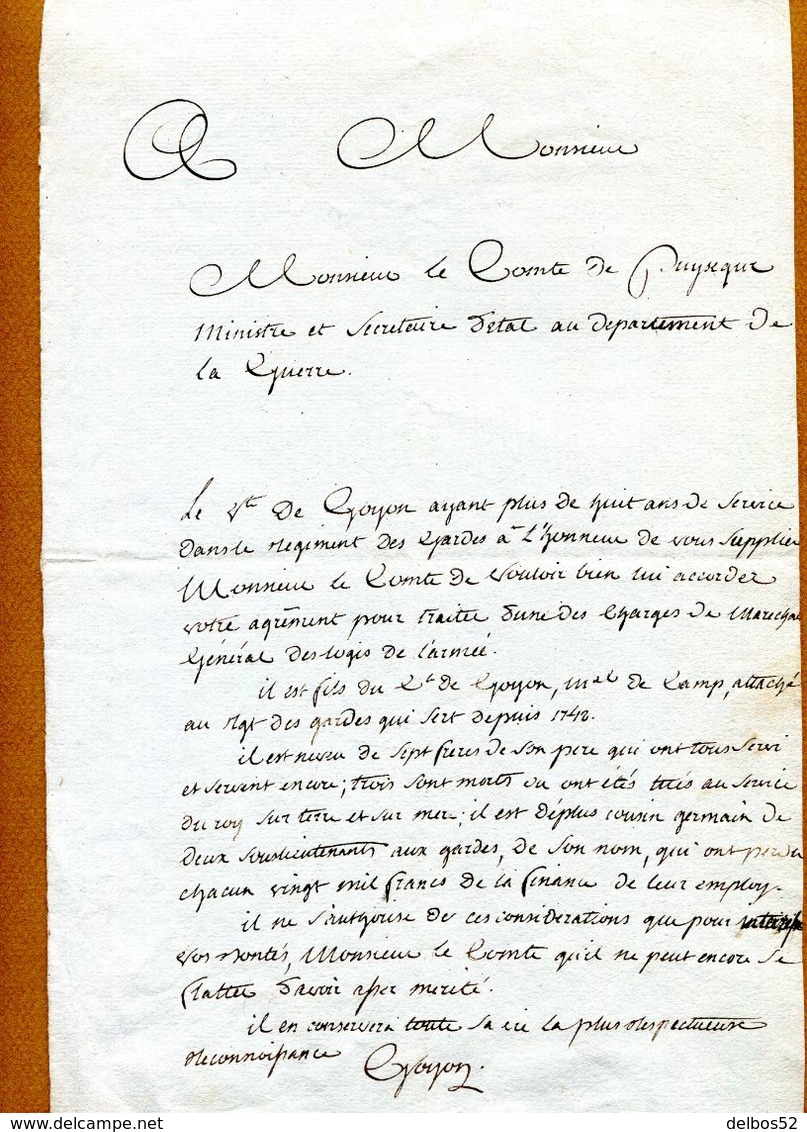 A Monsieur
Monsieur le Comte de Puysegur
Ministre et Secretaire d'etat au departement de
la Guerre.
Le Vte De Goyon ayant plus de huit ans de service
dans le regiment des Gardes a l'honneur de vous supplier
Monsieur le Comte de vouloir bien lui accorder
votre agrément pour traiter d'une des charges de Marechal
Général des logis de l'armeé.
il est fils du Cte de Goyon, mal de Camp, attaché
au rgt des gardes qui sert depuis 1742.
il est neveu de sept freres de son pere qui ont tous servi
et servent encore; trois sont morts ou ont étés tués au service
du roy sur terre et sur mer; il est déplus cousin germain de
deux souslieutenants aux gardes, de son nom, qui ont perdu
chacun vingt mil francs de la finance de leur employ.
il ne s'authorise de ces considerations que pour
vos bontés, Monsieur le Comte qu'il ne peut encore se
flatter d'avoir assez merité.
il en conservera toute sa vie la plus respectueuse
reconnoissance Goyon.
delbos52